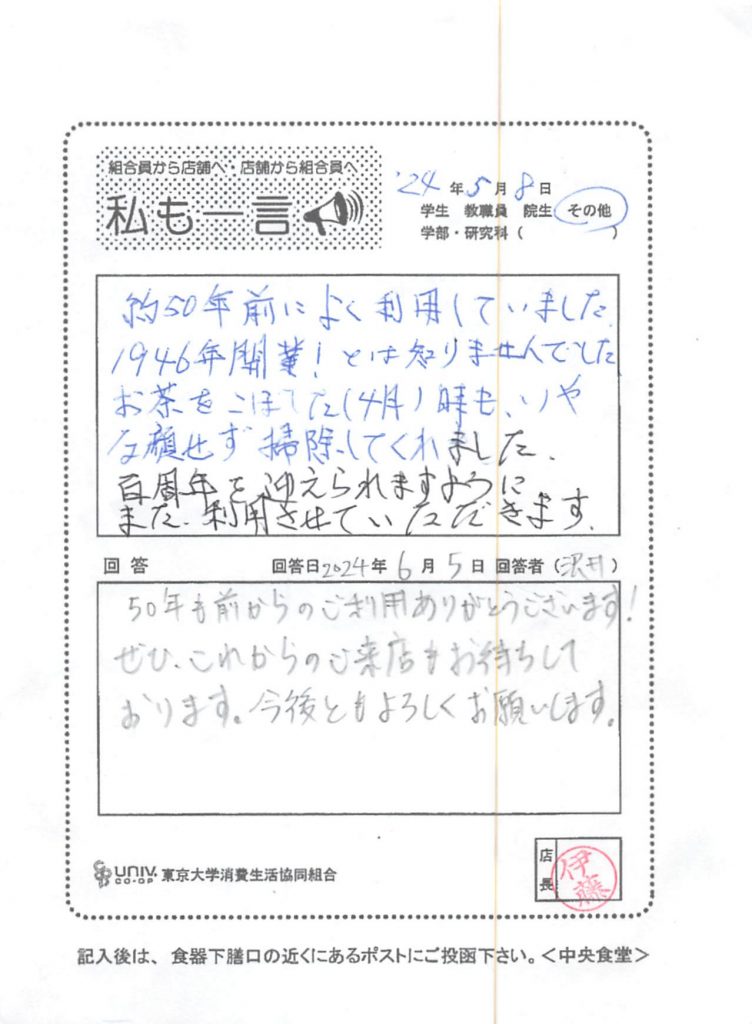 組合員から店舗へ・店舗から組合員へ
私も一言
'24年5月8日
学生 教職員 院生 その他
学部・研究科( )
約50年前によく利用していました。
1946年開業!とは知りませんでした
お茶をこぼした(4月)時も、いや
な顔せず掃除してくれました。
百周年を迎えられますように
また、利用させていただきます。
回答 回答日2024年6月5日 回答者(沢井)
50年も前からのご利用ありがとうございます!
ぜひ、これからのご来店もお待ちして
おります。今後ともよろしくお願いします。
UNIV. CO-OP 東京大学消費生活協同組合
店長 伊藤
記入後は、食器下膳口の近くにあるポストにご投函下さい。<中央食堂>